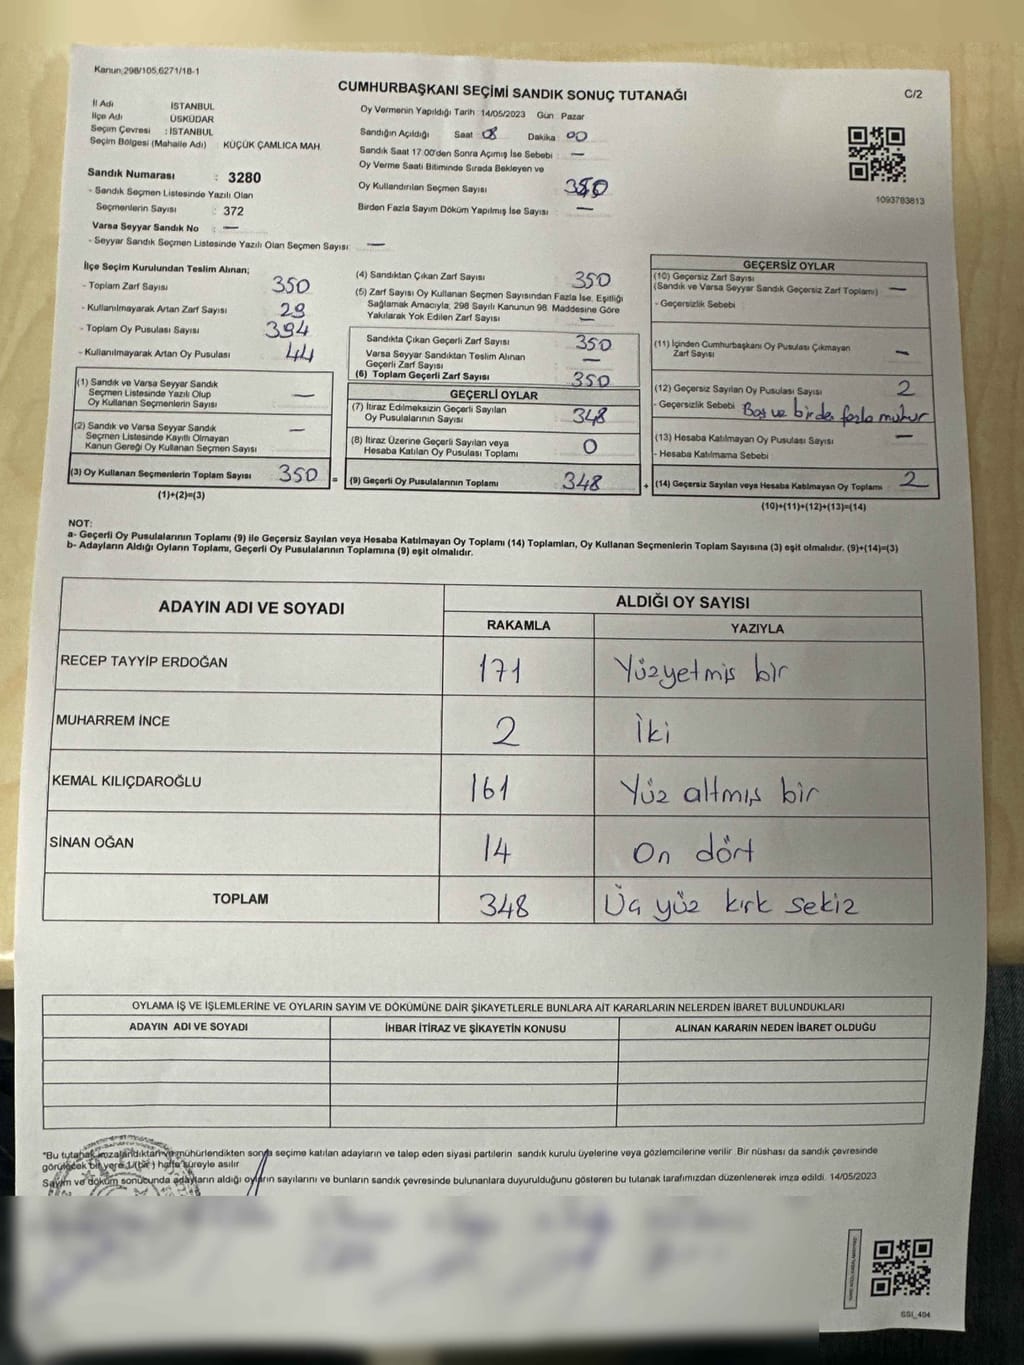 Kanun;298/105,6271/18-1
CUMHURBAŞKANI SEÇİMİ SANDIK SONUÇ TUTANAĞI
C/2
İl Adı İSTANBUL
İlçe Adı ÜSKÜDAR
Seçim Çevresi : İSTANBUL
Seçim Bölgesi (Mahalle Adı) : KÜÇÜK ÇAMLICA MAH.
Sandık Numarası : 3280
- Sandık Seçmen Listesinde Yazılı Olan
Seçmenlerin Sayısı : 372
Varsa Seyyar Sandık No : —
- Seyyar Sandık Seçmen Listesinde Yazılı Olan Seçmen Sayısı: —
Oy Vermenin Yapıldığı Tarih : 14/05/2023 Gün : Pazar
Sandığın Açıldığı Saat : 08 Dakika : 00
Sandık Saat 17:00'den Sonra Açımış İse Sebebi : —
Oy Verme Saati Bitiminde Sırada Bekleyen ve
Oy Kullandırılan Seçmen Sayısı 350
Birden Fazla Sayım Döküm Yapılmış İse Sayısı : —
1093783813
İlçe Seçim Kurulundan Teslim Alınan;
- Toplam Zarf Sayısı 350
- Kullanılmayarak Artan Zarf Sayısı 29
- Toplam Oy Pusulası Sayısı 394
- Kullanılmayarak Artan Oy Pusulası 44
(1) Sandık ve Varsa Seyyar Sandık
Seçmen Listesinde Yazılı Olup
Oy Kullanan Seçmenlerin Sayısı —
(2) Sandık ve Varsa Seyyar Sandık
Seçmen Listesinde Kayıtlı Olmayan
Kanun Gereği Oy Kullanan Seçmen Sayısı —
(3) Oy Kullanan Seçmenlerin Toplam Sayısı 350
(1)+(2)=(3)
(4) Sandıktan Çıkan Zarf Sayısı 350
(5) Zarf Sayısı Oy Kullanan Seçmen Sayısından Fazla İse, Eşitliği
Sağlamak Amacıyla, 298 Sayılı Kanunun 98. Maddesine Göre
Yakılarak Yok Edilen Zarf Sayısı —
Sandıkta Çıkan Geçerli Zarf Sayısı 350
Varsa Seyyar Sandıktan Teslim Alınan
Geçerli Zarf Sayısı —
(6) Toplam Geçerli Zarf Sayısı 350
GEÇERLİ OYLAR
(7) İtiraz Edilmeksizin Geçerli Sayılan
Oy Pusulalarının Sayısı 348
(8) İtiraz Üzerine Geçerli Sayılan veya
Hesaba Katılan Oy Pusulası Toplamı 0
= (9) Geçerli Oy Pusulalarının Toplamı 348
GEÇERSİZ OYLAR
(10) Geçersiz Zarf Sayısı
(Sandık ve Varsa Seyyar Sandık Geçersiz Zarf Toplamı) —
- Geçersizlik Sebebi
(11) İçinden Cumhurbaşkanı Oy Pusulası Çıkmayan
Zarf Sayısı —
(12) Geçersiz Sayılan Oy Pusulası Sayısı 2
- Geçersizlik Sebebi Boş ve birden fazla mühür
(13) Hesaba Katılmayan Oy Pusulası Sayısı —
- Hesaba Katılmama Sebebi
+ (14) Geçersiz Sayılan veya Hesaba Katılmayan Oy Toplamı 2
(10)+(11)+(12)+(13)=(14)
NOT:
a- Geçerli Oy Pusulalarının Toplamı (9) ile Geçersiz Sayılan veya Hesaba Katılmayan Oy Toplamı (14) Toplamları, Oy Kullanan Seçmenlerin Toplam Sayısına (3) eşit olmalıdır. (9)+(14)=(3)
b- Adayların Aldığı Oyların Toplamı, Geçerli Oy Pusulalarının Toplamına (9) eşit olmalıdır.
ADAYIN ADI VE SOYADI ALDIĞI OY SAYISI
RAKAMLA YAZIYLA
RECEP TAYYİP ERDOĞAN 171 Yüzyetmiş bir
MUHARREM İNCE 2 İki
KEMAL KILIÇDAROĞLU 161 Yüz altmış bir
SİNAN OĞAN 14 On dört
TOPLAM 348 Üç yüz kırk sekiz
OYLAMA İŞ VE İŞLEMLERİNE VE OYLARIN SAYIM VE DÖKÜMÜNE DAİR ŞİKAYETLERLE BUNLARA AİT KARARLARIN NELERDEN İBARET BULUNDUKLARI
ADAYIN ADI VE SOYADI İHBAR İTİRAZ VE ŞİKAYETİN KONUSU ALINAN KARARIN NEDEN İBARET OLDUĞU
*Bu tutanak imzalandıktan ve mühürlendikten sonra seçime katılan adayların ve talep eden siyasi partilerin sandık kurulu üyelerine veya gözlemcilerine verilir. Bir nüshası da sandık çevresinde
görülecek bir yere 1 (bir) hafta süreyle asılır
Sayım ve döküm sonucunda adayların aldığı oyların sayılarını ve bunların sandık çevresinde bulunanlara duyurulduğunu gösteren bu tutanak tarafımızdan düzenlenerek imza edildi. 14/05/2023
SSI_404